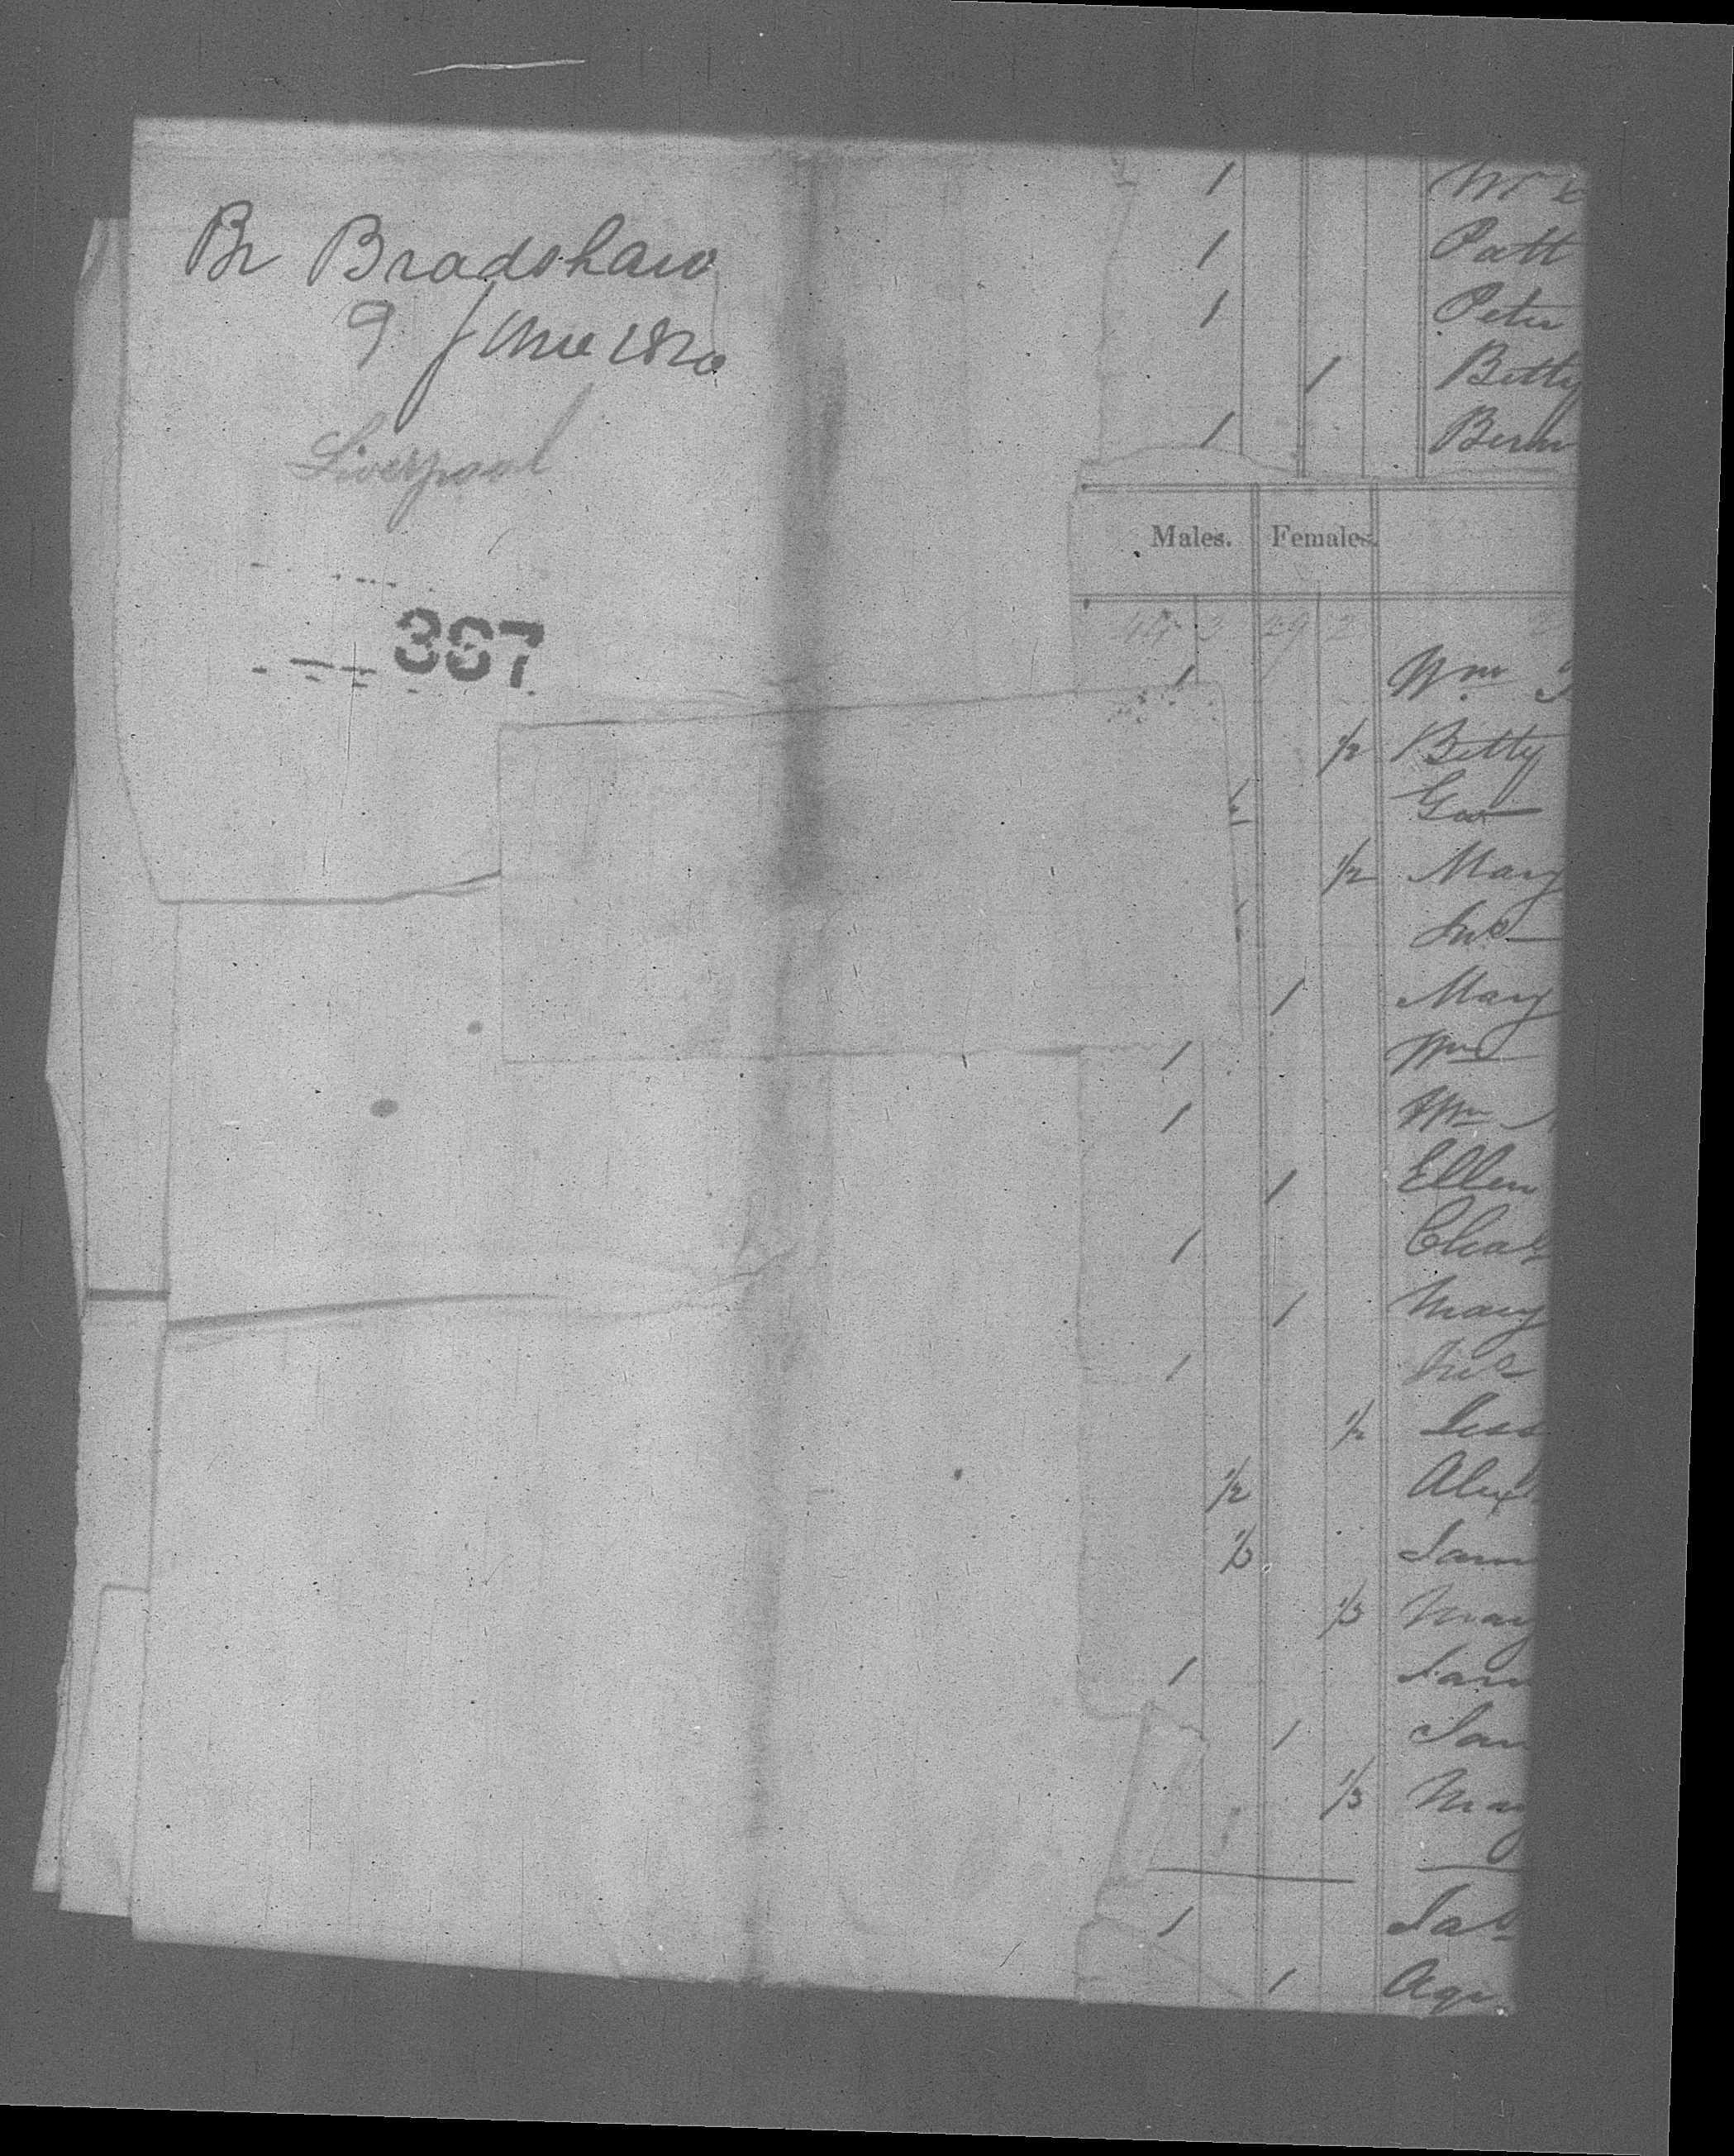 Br Bradshaw
9 June 1820
Liverpool
367
1
1 Patt
1 Peter
1 Betty
1 Bern
Males. Females.
44 3 29 2
1 Wm
1/2 Betty
Geo
1/2 Mary
Jno
1 Mary
1 Wm
1 Wm
1 Ellen
1 Chas
1 Mary
1
1/2
1/2 Alex
1/3
1/3 Mary
1
1
1/3 Mary
1 Jas
1 Agn